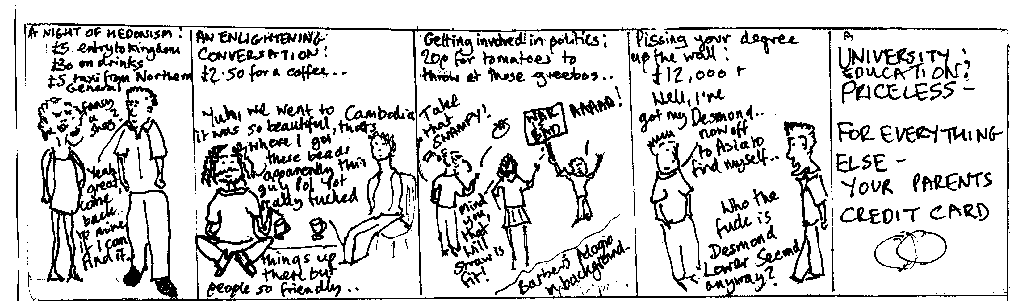 A NIGHT OF HEDONISM:
£5 entry to Kingdom
£30 on drinks
£5 taxi from Northern
General
Fancy
a
Yeah
great,
come
back
to mine
if I can
find it.
AN ENLIGHTENING
CONVERSATION:
£2.50 for a coffee..
Yuh, we went to Cambodia
it was so beautiful, that's
where I got
these beads
apparently this
guy Pol Pot
really fucked
things up
there but
people so friendly..
Getting involved in politics:
20p for tomatoes to
throw at those greebos..
Take
that
SWAMPY!
WAR
BAD
AAAAA!
Mind
you
that
Will
Straw is
fit!
Barber's Adagio
in background.
Pissing your degree
up the wall:
£12,000 +
Well, I've
got my Desmond..
now off
to Asia to
find myself..
Who the
fude is
Desmond
Lower Second
anyway?
A
UNIVERSITY
EDUCATION?
PRICELESS -
FOR EVERYTHING
ELSE -
YOUR PARENTS
CREDIT CARD